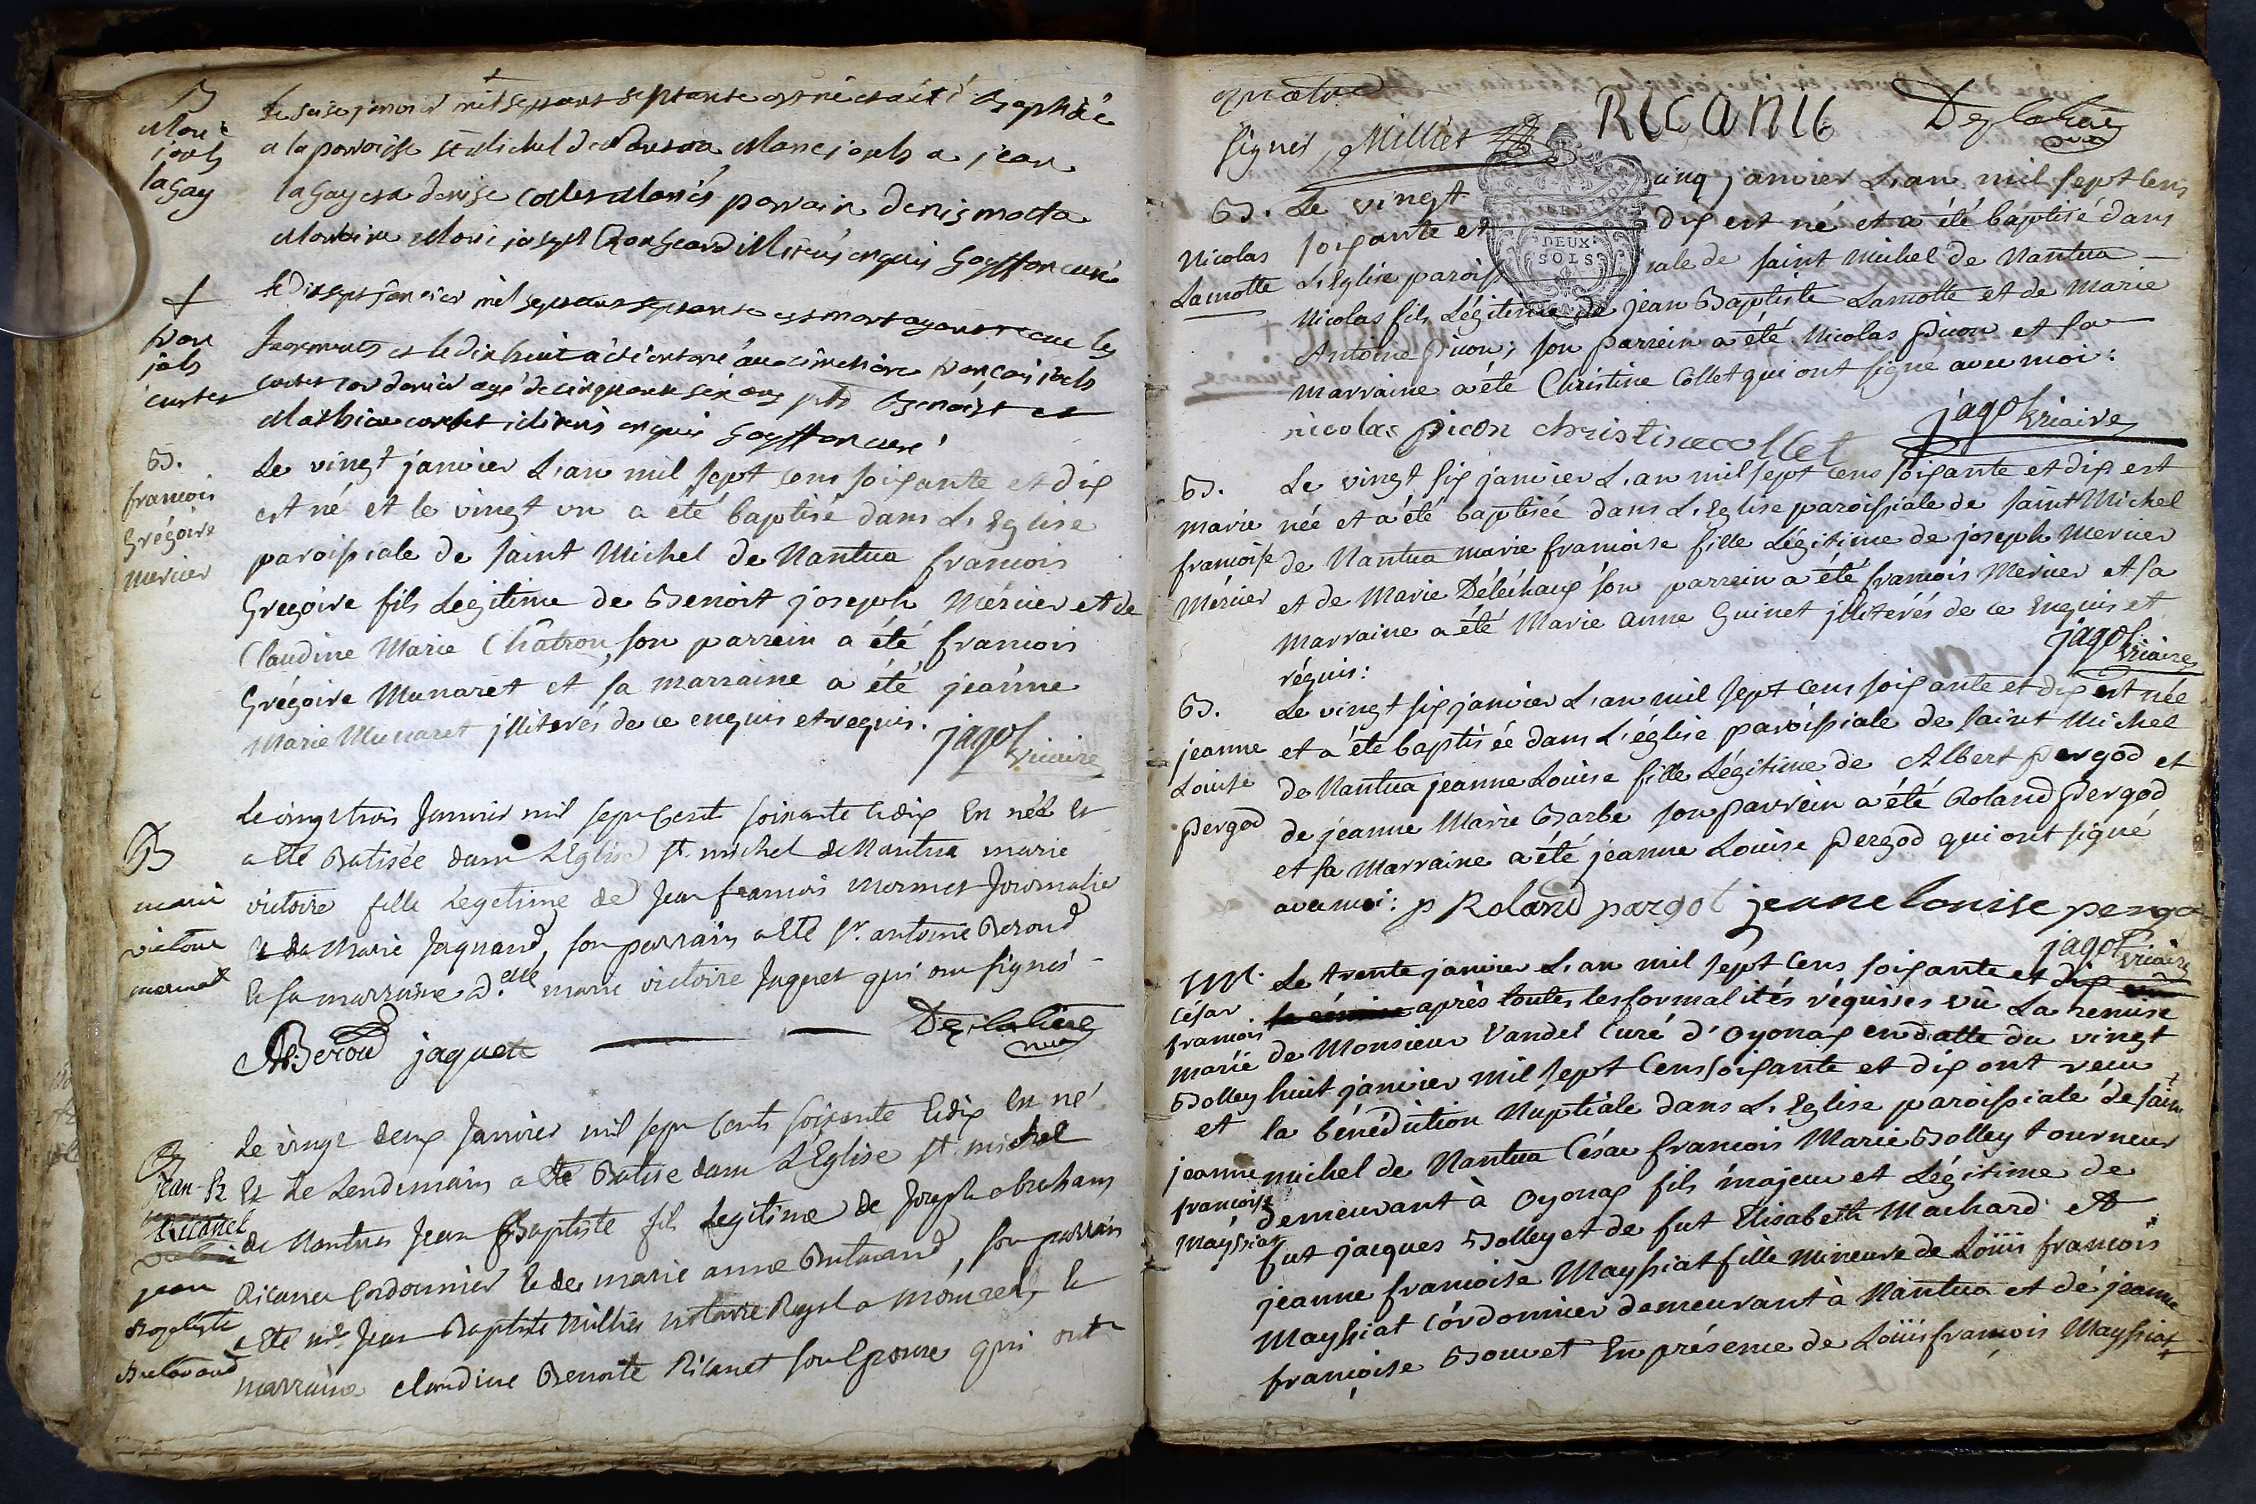 B
Marie
josph
la Gay
le seise janvier mil sept cent septante est né et a été Baptisé
a la parroisse st Michel de Nantua Marie joseph a jean
la Gay et a denise collet Mariés parrain denis motta
Marraine Marie joseph illiterés enquis Goyffon curé
+
fran
josh
curtet
le dix sept janvier mil sept cent septante est mort ayant receu les
sacrements et le dix huit a été enterré au cimetiere françois josph
curtet cordonier agé de cinquante six ans pnts Benoist et
Mathieu curtet illiterés enquis Goyffon curé
B.
francois
Grégoire
Mercier
Le vingt janvier L'an mil sept cens soixante et dix
est né et le vingt un a été baptisé dans L'Eglise
paroissiale de saint Michel de Nantua francois
Gregoire fils Légitime de Benoit joseph Mércier et de
Claudine Marie Châtron, son parrein a été francois
Grégoire Munaret et sa marraine a été jeanne
Marie Munaret jlliterés de ce enquis et requis. jagot
vicaire
B
marie
victoire
mermet
Le vingt trois Janvier mil sept Cent soixante et dix En née Et
a Eté Batisée dans L'Eglise st. michel de Nantua marie
victoire fille Legetime de Jean francois mermet Journalie
Et de Marie Jaquand, son parrain a Eté sr. antoine Beroud
Et sa marraine d.elle marie victoire Jaquet qui ont signés -
ABeroud jaquet Deglatiere
B
jean-B
Ricanet
jean
Baptiste
Le vingt deux Janvier mil sept Cents soixante Et dix En né
Et Le Lendemain a Eté Batisé dans L'Eglise st. michel
de Nantua Jean Baptiste fils Legitime de Joseph abraham
Ricanet Cordonnier Et de marie anne, son parrain
a Eté mr Jean Baptiste Milliet notaire Royal a, Et
marraine claudine Benoite Ricanet son Epouse qui ont
signés, Milliet RICANIE
B.
Nicolas
Lamotte
Le vingt cinq janvier L'an mil sept cens
soixante et dix est né et a été baptisé dans
L'Eglise paroissiale de saint Michel de Nantua
DEUX
SOLS
Nicolas fils Légitime de jean Baptiste Lamotte et de Marie
Antoine Picon; son parrein a été Nicolas Picon et sa
marraine a été Christine Collet qui ont signé avec moi:
nicolas picon christine collet jagot vicaire
B.
marie
francoise
Mércier
Le vingt six janvier L'an mil sept cens soixante et dix est
née et a été baptisée dans L'Eglise paroissiale de saint Michel
de Nantua marie francoise fille Légitime de joseph Mercier
et de Marie Déléchaux son parrein a été francois Mercier et sa
Marraine a été Marie Anne Guinet jlliterés de ce Enquis et
réquis: jagot vicaire
B.
jeanne
Louise
pergod
Le vingt six janvier L'an mil sept cens soixante et dix est née
et a été baptisée dans L'église paroissiale de saint Michel
de Nantua jeanne Louise fille Légitime de Albert pergod et
de jeanne Marie Barbe son parrein a été Roland Pergod
et sa Marraine a été jeanne Louise Pergod qui ont signé
avec moi: p Roland pargot jeanelouise pergo
jagot vicaire
M.
César
francois
marie
Bolley
et
jeanne
francoise
Mayssiat
Le trente janvier L'an mil sept Cens soixante et dix
après toutes les formalités réquises vû La remise
de Monsieur Vandel Curé d'Oyonax en datte du vingt
huit janvier mil sept Cens soixante et dix ont recu
la bénédiction Nuptiale dans L'Eglise paroissiale de saint
michel de Nantua César francois Marie Bolley tourneur
demeurant à Oyonax fils majeur et Légitime de
fut jacques Bolley et de fut Elisabeth Machard Et
jeanne francoise Mayssiat fille mineure de Loüis francois
Mayssiat córdonnier demeurant à Nantua et de jeanne
françoise Bouvet En présence de Loüis françois Mayssiat